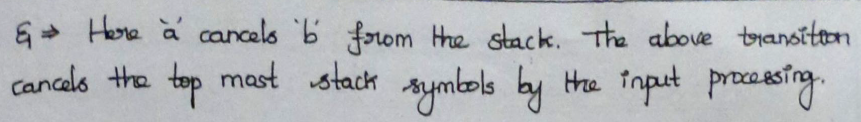 ε ⇒ Here 'a' cancels 'b' from the stack. The above transition
cancels the top most stack symbols by the input processing.